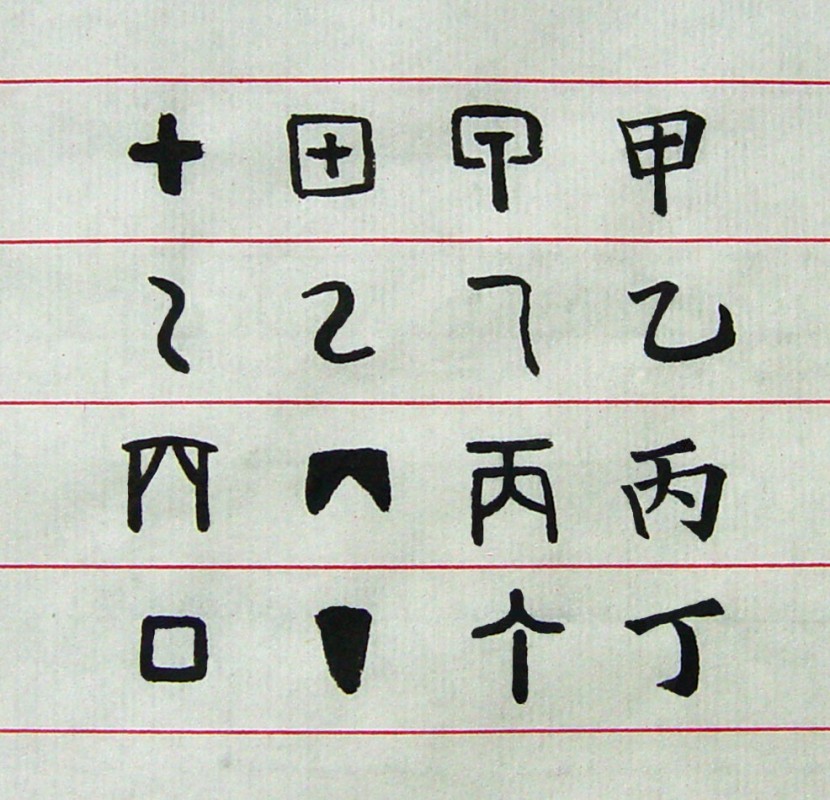 十 田 甲 甲
乙 乙 乙 乙
丙 丙 丙 丙
丁 丁 丁 丁